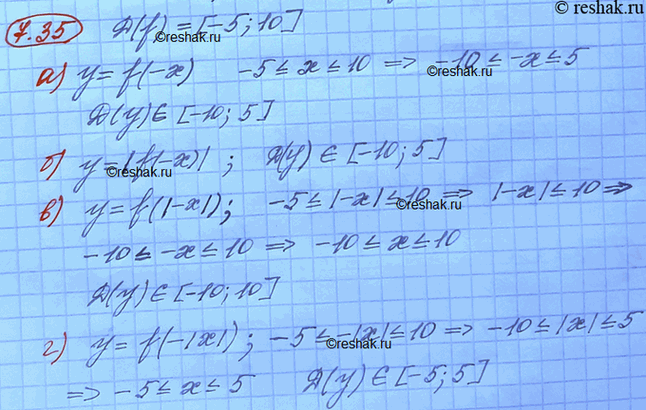 © reshak.ru
7.35 D(f) = [-5; 10]
©reshak.ru
а) y = f(-x) -5 ≤ x ≤ 10 => -10 ≤ -x ≤ 5
©reshak.ru
D(y) ∈ [-10; 5]
б) y = |f(-x)| ; D(y) ∈ [-10; 5]
©reshak.ru
в) y = f(|-x|); -5 ≤ |-x| ≤ 10 => |-x| ≤ 10 =>
©reshak.ru
-10 ≤ -x ≤ 10 => -10 ≤ x ≤ 10
D(y) ∈ [-10; 10]
г) y = f(-|x|) ; -5 ≤ -|x| ≤ 10 => -10 ≤ |x| ≤ 5
©reshak.ru
=> -5 ≤ x ≤ 5 D(y) ∈ [-5; 5]